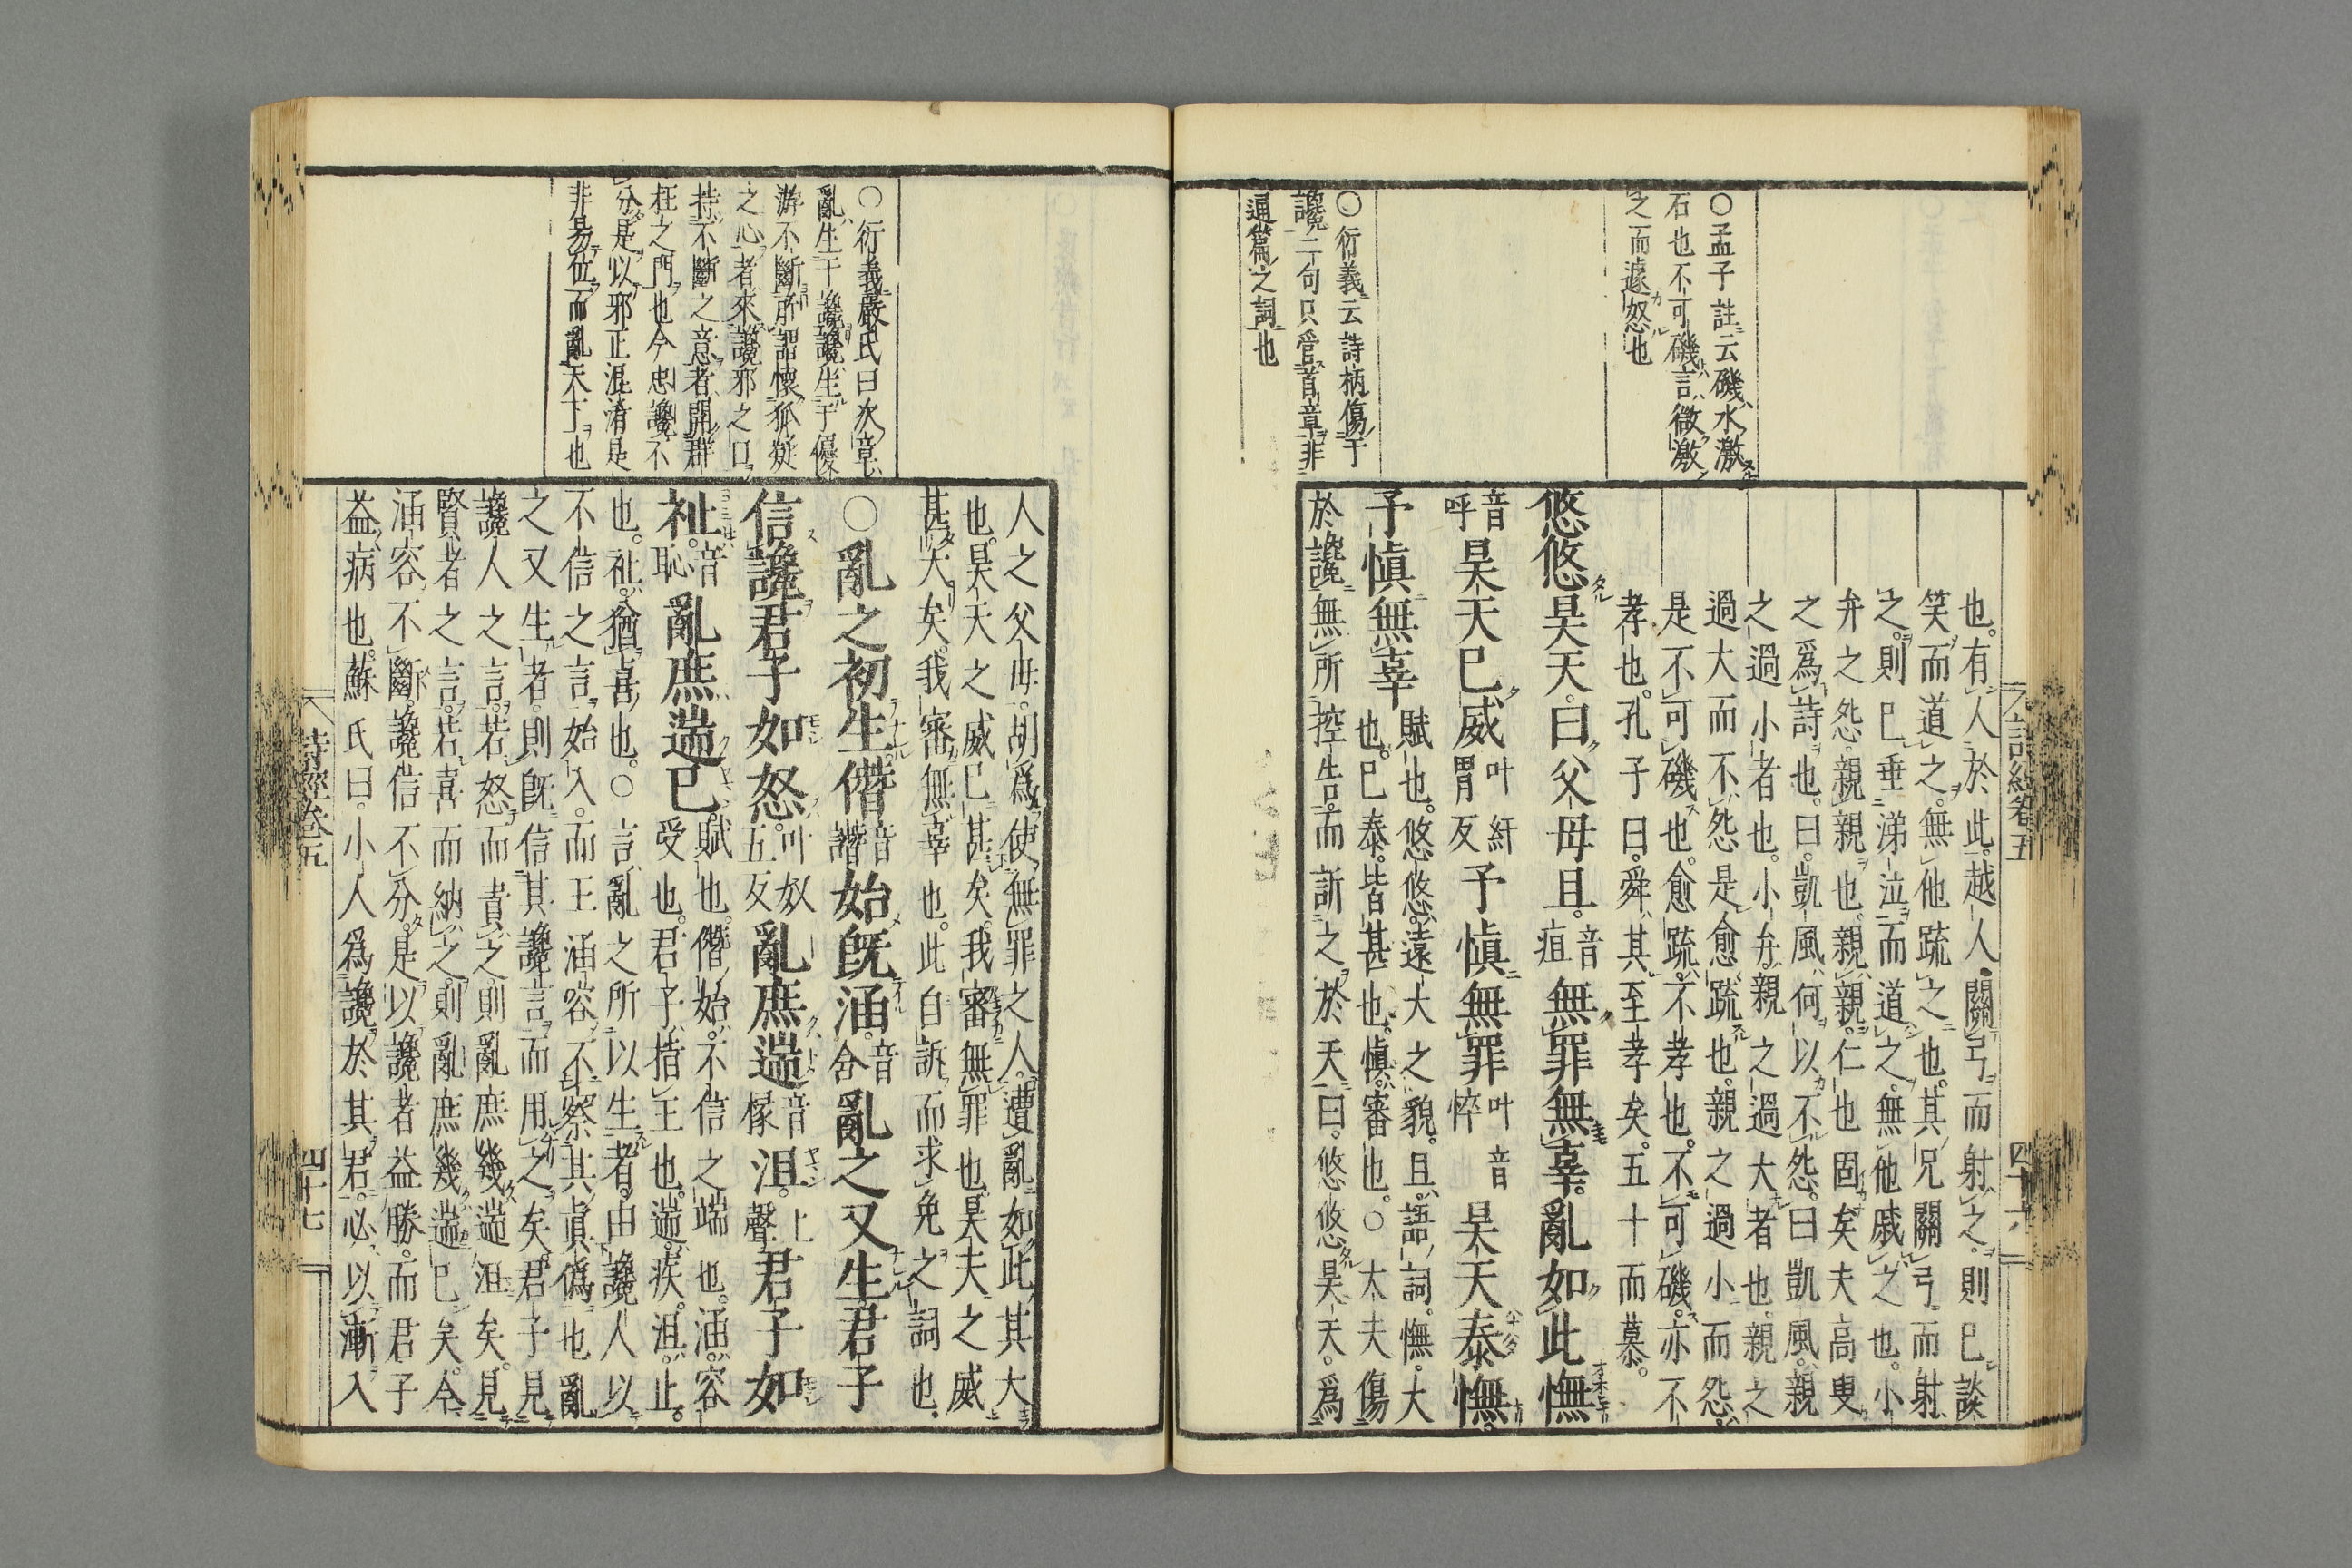 ○孟子註云磯水激
石也不可磯言微激
之而遽怒也
○衍義云詩柄傷于
讒二句只管首章非
通篇之詞也
詩經卷五
四十六
也。有人於此。越人關弓而射之。則已談
笑而道之。無他疏之也。其兄關弓而射
之。則已垂涕泣而道之。無他戚之也。小
弁之怨。親親也。親親。仁也固矣夫高叟
之爲詩也。曰。凱風何以不怨。曰凱風親
之過小者也。小弁。親之過大者也。親之
過大而不怨是愈疏也。親之過小而怨。
是不可磯也。愈疏。不孝也。不可磯。亦不
孝也。孔子曰。舜其至孝矣。五十而慕。
悠悠昊天。曰父母且。音疽無罪無辜。亂如此憮
音呼昊天已威叶紆胃反予愼無罪叶音悴昊天泰憮。
予愼無辜賦也。悠悠。遠大之貌。且。語詞。憮。大也。已泰。皆甚也。愼。審也。○大夫傷
於讒無所控告。而訴之於天曰。悠悠昊天。爲
人之父母。胡爲使無罪之人。遭亂如此其大
也。昊天之威已甚矣。我審無罪也。昊天之威
甚大矣。我審無辜也。此自訴而求免之詞也。
○亂之初生。僭音譖始旣涵。音含亂之又生君子
信讒君子如怒。叶奴五反亂庶遄音椽沮。上聲君子如
祉。音恥亂庶遄已。賦也。僭始。不信之端也。涵。容受也。君子。指王也。遄。疾。沮。止
也。祉。猶喜也。○言亂之所以生者。由讒人以
不信之言始入。而王涵容不察其眞僞也亂
之又生者。則旣信其讒言而用之矣。君子見
讒人之言。若怒而責之則亂庶幾遄沮矣。見
賢者之言。若喜而納之。則亂庶幾遄已矣。今
涵容不斷。讒信不分。是以讒者益勝。而君子
益病也。蘇氏曰。小人爲讒於其君。必以漸入
○衍義嚴氏曰次章
亂生于讒讒生于優
游不斷所謂懷狐疑
之心者來讒邪之口
持不斷之意者開群
枉之門也今忠讒不
分是以邪正混淆是
非易位而亂天下也
詩經卷五
四十七